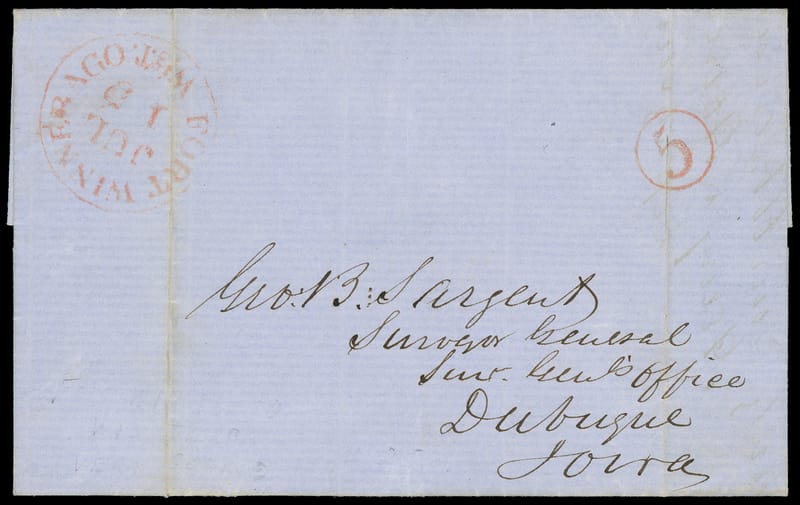 FORT WINNEBAGO
JUL
5
Geo: B: Sargent
Surveyor General
Surv. Genl's Office
Dubuque
Iowa